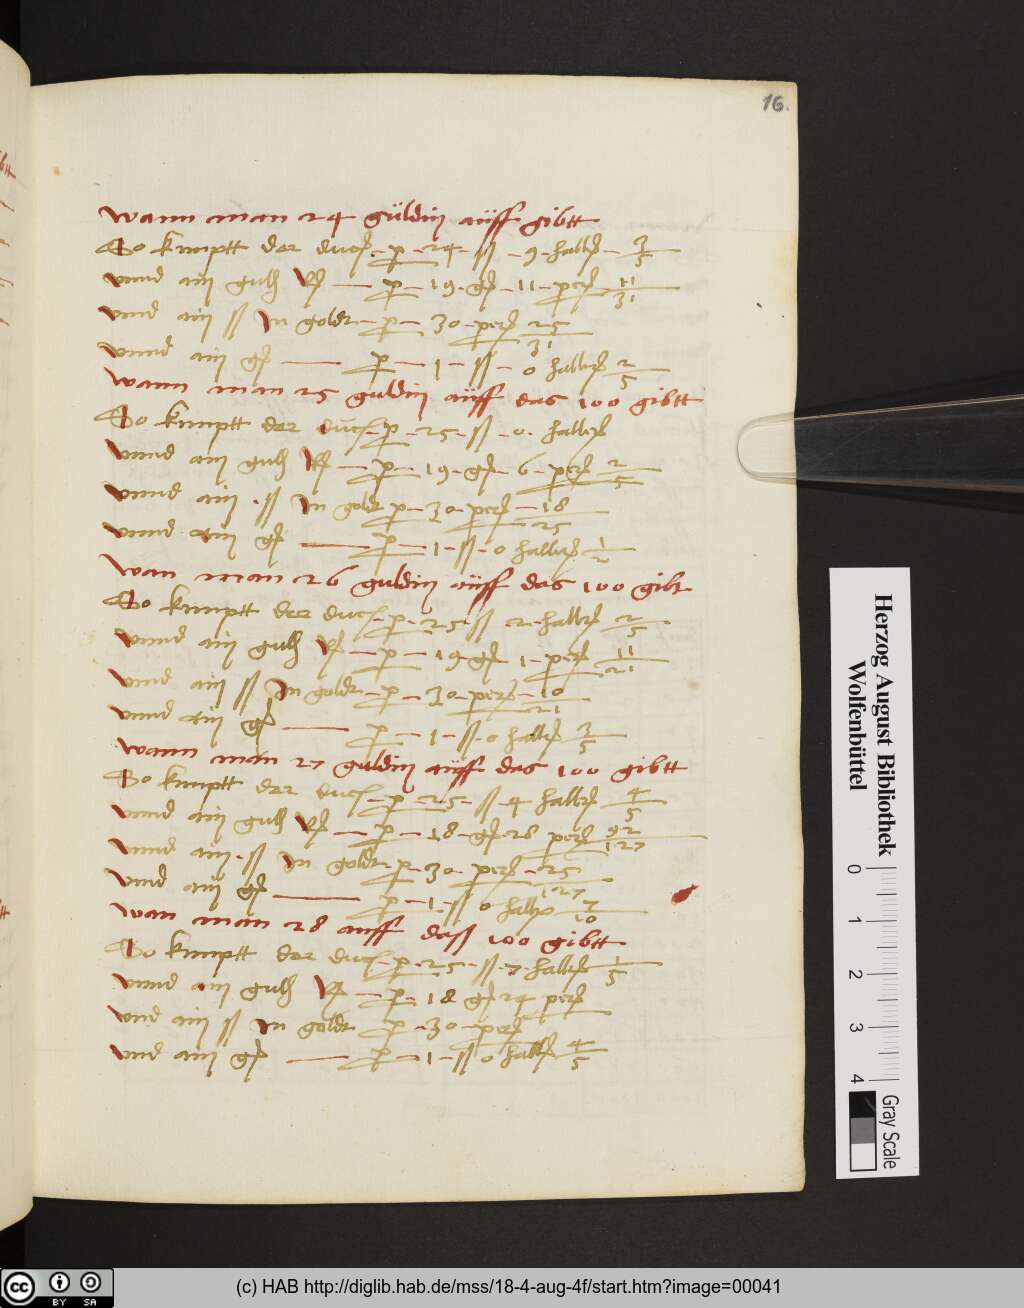 16.
wann man 24 güldin aüff gibtt
So kumptt der duc. p. 24 ß 9 haller 3/5
vnnd ain guld p 19 gß 11 per 11/31
vnd ain ß In goldt p 30 per 25/31
vnnd ain gß p 1 ß 0 haller 2/5
wann man 25 guldin aüff das 100 gibtt
So kumptt der duc p 25 ß 0 haller
vnnd ain guld p 19 gß 6 per 2/5
vnnd ain ß In goldt p 30 per 18/25
vnnd ain gß p 1 ß 0 haller 1/2
wan man 26 guldin aüff das 100 gibt
So kumptt der duc p 25 ß 2 haller 2/5
vnnd ain guld p 19 gß 1 per 11/21
vnnd ain ß In goldt p 30 per 10/21
vnnd ain gß p 1 ß 0 haller 3/5
wann man 27 guldin aüff das 100 gibtt
So kumptt der duc p 25 ß 4 haller 4/5
vnnd ain guld p 18 gß 28 per 92/127
vnnd ain ß In goldt p 30 per 25/127
vnnd ain gß p 1 ß 0 haller 7/10
wan man 28 auff daß 100 gibtt
So kumptt der duc p 25 ß 7 haller 1/5
vnnd ain guld p 18 gß 24 per
vnd ain ß In goldt p 30 per
vnd ain gß p 1 ß 0 haller 4/5
Herzog August Bibliothek
Wolfenbüttel
0 1 2 3 4
Gray Scale
cc BY SA
(c) HAB http://diglib.hab.de/mss/18-4-aug-4f/start.htm?image=00041